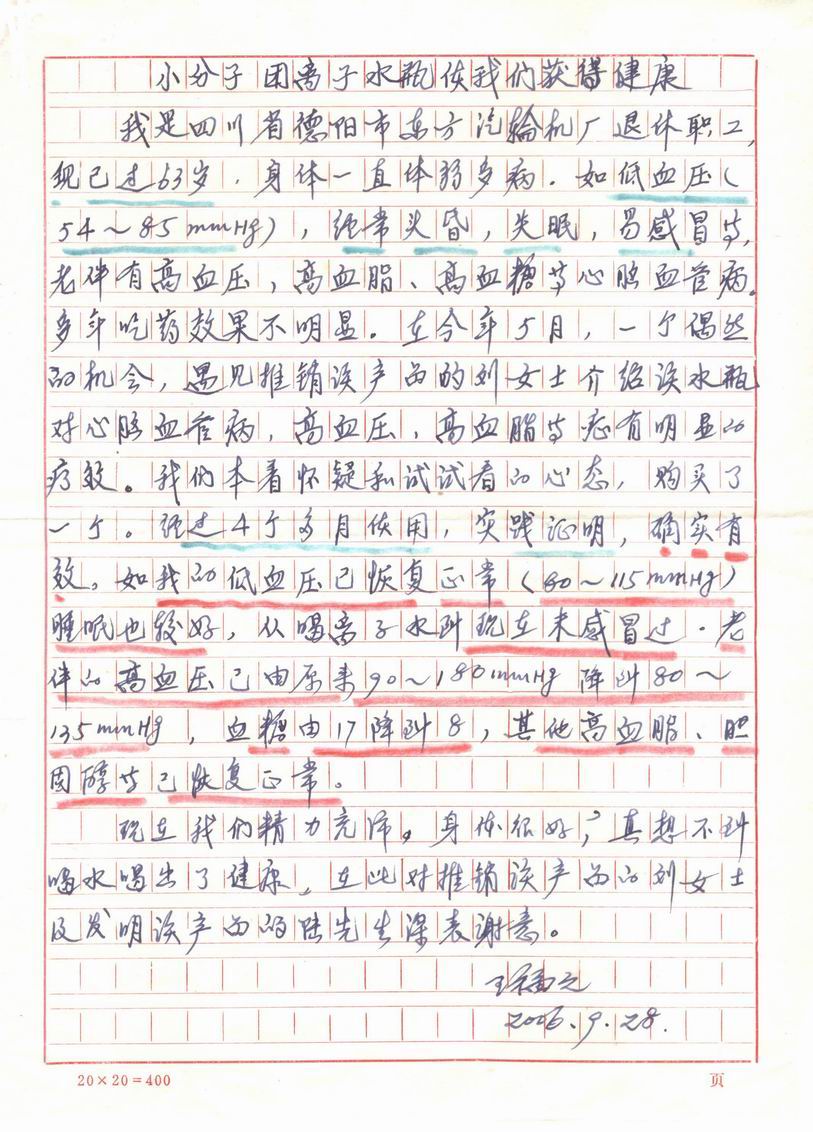 小分子团离子水瓶使我们获得健康
我是四川省德阳市东方汽轮机厂退休职工,
现已过63岁.身体一直体弱多病.如低血压(
54~85mmHg),经常头昏,失眠,易感冒等,
老伴有高血压,高血脂、高血糖等心脑血管病.
多年吃药效果不明显.在今年5月,一个偶然
的机会,遇见推销该产品的刘女士介绍该水瓶
对心脑血管病,高血压,高血脂等症有明显的
疗效。我们本着怀疑和试试看的心态,购买了
一个。经过4个多月使用,实践证明,确实有
效。如我的低血压已恢复正常(80~115mmHg)
睡眠也较好,从喝离子水到现在未感冒过.老
伴的高血压已由原来90~180mmHg降到80~
135mmHg,血糖由17降到8,其他高血脂、胆
固醇等已恢复正常。
现在我们精力充沛,身体很好,真想不到
喝水喝出了健康,在此对推销该产品的刘女士
及发明该产品的陆先生深表谢意。
2006.9.28.
20×20=400 页